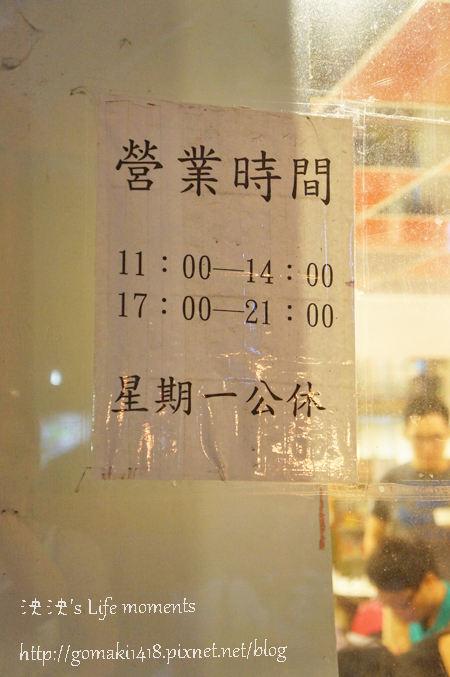 營業時間
11：00—14：00
17：00—21：00
星期一公休
泱泱's Life moments
http://gomaki1418.pixnet.net/blog